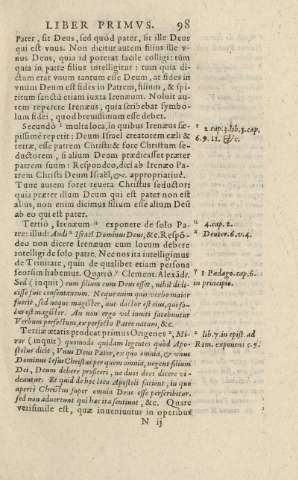 LIBER PRIMVS. 98
Pater, sit Deus, sed quòd pater, sit ille Deus
qui est vnus. Non dicitur autem filius ille v-
nus Deus, quia id poterat facilè colligi: tum
quia in patre filius intelligitur: tum quia di-
ctum erat vnum tantum esse Deum, at fides in
vnum Deum est fides in Patrem, filium, & spi-
ritum sanctũ etiam iuxta Irenæum. Noluit au-
tem repetere Irenæus, quia scribebat symbo-
lum fidei, quod breuissimum esse debet.
Secundò multa loca, in quibus Irenæus sæ-
pissimè repetit: Deum Israel creatorem cæli &
terræ, esse patrem Christi: & fore Christum se-
ductorem, si alium Deum prædicasset præter
patrem suum: Respondeo, dici ab Irenæo Pa-
trem Christi Deum Israël, &c. appropriatiuè.
Tunc autem foret teuera Christus seductor:
quia præter illum Deum qui est pater non est
alius, non enim dicimus filium esse alium Deũ
ab eo qui est pater.
Tertiò, Irenæum exponere de solo Pa-
tre illud: Audi Israel Dominus Deus, &c. Respõ-
deo non dicere Irenæum eum locum debere
intelligi de solo patre. Nec nos ita intelligimus
de Trinitate, quin de qualibet etiam persona
seorsim habemus. Quarò Clement. Alexãdr.
Sed (inquit) eum filium cum Deus esset, nihil deli-
esse suit consentaneum. Neque enim quæ verbo maior
fuerit, sed neque magister, aut doctor est eius, qui so-
lus est magister. An non ergo vel inuiti fatebuntur
Verbum perfectum, ex perfecto Patre natum, &c.
Tertia ætatis prodeat primus Origenes. Mi-
ror (inquit) quomodo quidam legentes quòd Apo-
stolus dicit, Vnus Deus Pater, ex quo omnia, & vnus
Dominus Iesus Christus per quem omnia, negent filium
Dei, Deum debere profiteri, ne duos deos dicere vi-
deantur. Et quid de hoc loco Apostoli facient, in quo
apertè Christus super omnia Deus esse perscribitur,
sed non aduertunt qui hæc ita sentiunt, &c. Quare
verisimile est, quæ inueniuntur in operibus
N ij
2 cap. 3. lib. 3. cap.
6. 9. 11. &c.
4. cap. 2.
Deuter. 6. v. 4.
1 Pædago. cap. 6.
in principio.
lib. 7. in epist. ad
Rom. exponens c. 9.